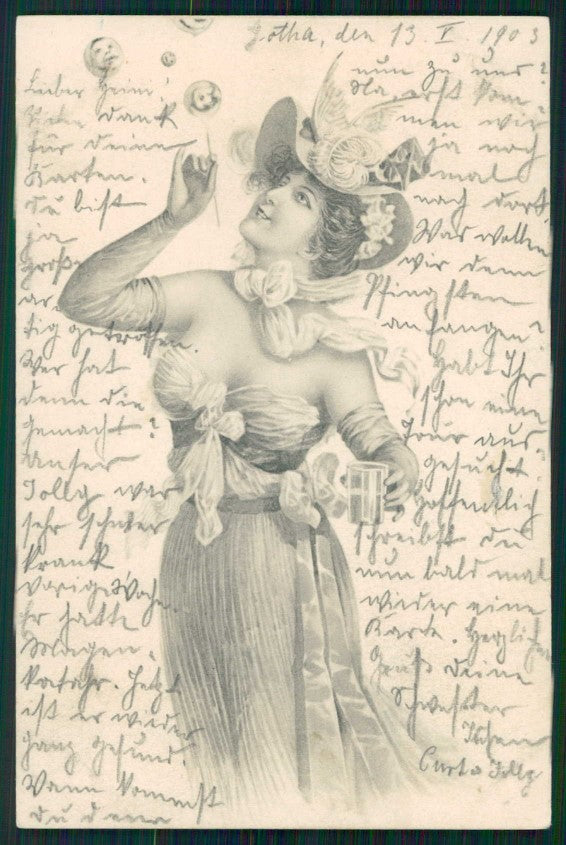 Gotha, den 13. V. 1903
Lieber Heini!
Vielen Dank
für Deine
Karten.
Du bist
ja
große
ar
tig getroffen.
Wer hat
denn die
gemacht?
Unser
Jolly war
sehr schwer
krank
vorige Woche.
Er hatte
Magen-
katarh. Jetzt
ist er wieder
ganz gesund.
Wann kommst
du denn
nun zu uns?
Na, erst kom-
men wir
ja noch
mal
nach dort.
Was wollen
wir denn
Pfingsten
anfangen?
Habt Ihr
schon eine
Tour aus-
gesucht.
Hoffentlich
schreibst du
nun bald mal
wieder eine
Karte. Herzlichen
Gruß Deine
Schwester
Curt u Jolly